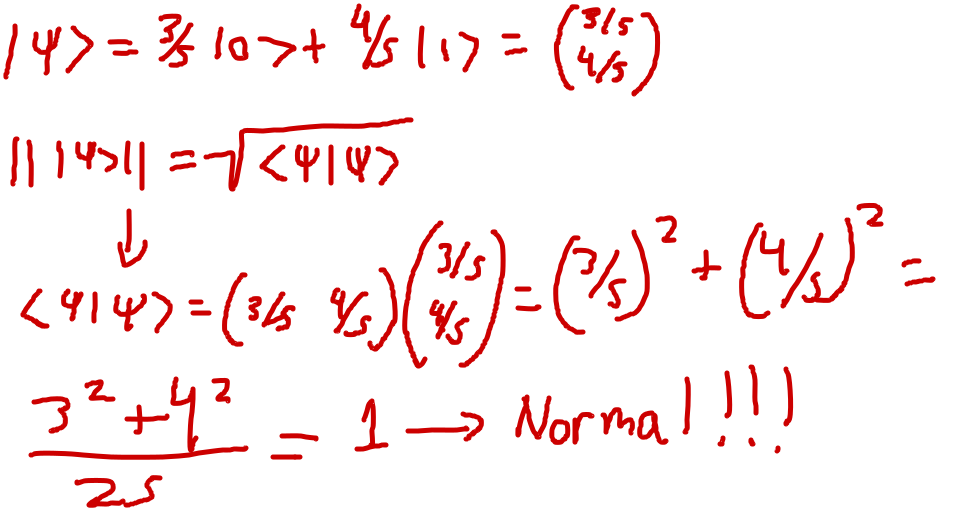 |ψ> = 3/5 |0> + 4/5 |1> = (3/5 4/5)
|| |ψ> || = √<ψ|ψ>
↓
<ψ|ψ> = (3/5 4/5) (3/5 4/5) = (3/5)² + (4/5)² =
3² + 4² / 25 = 1 → Normal!!!